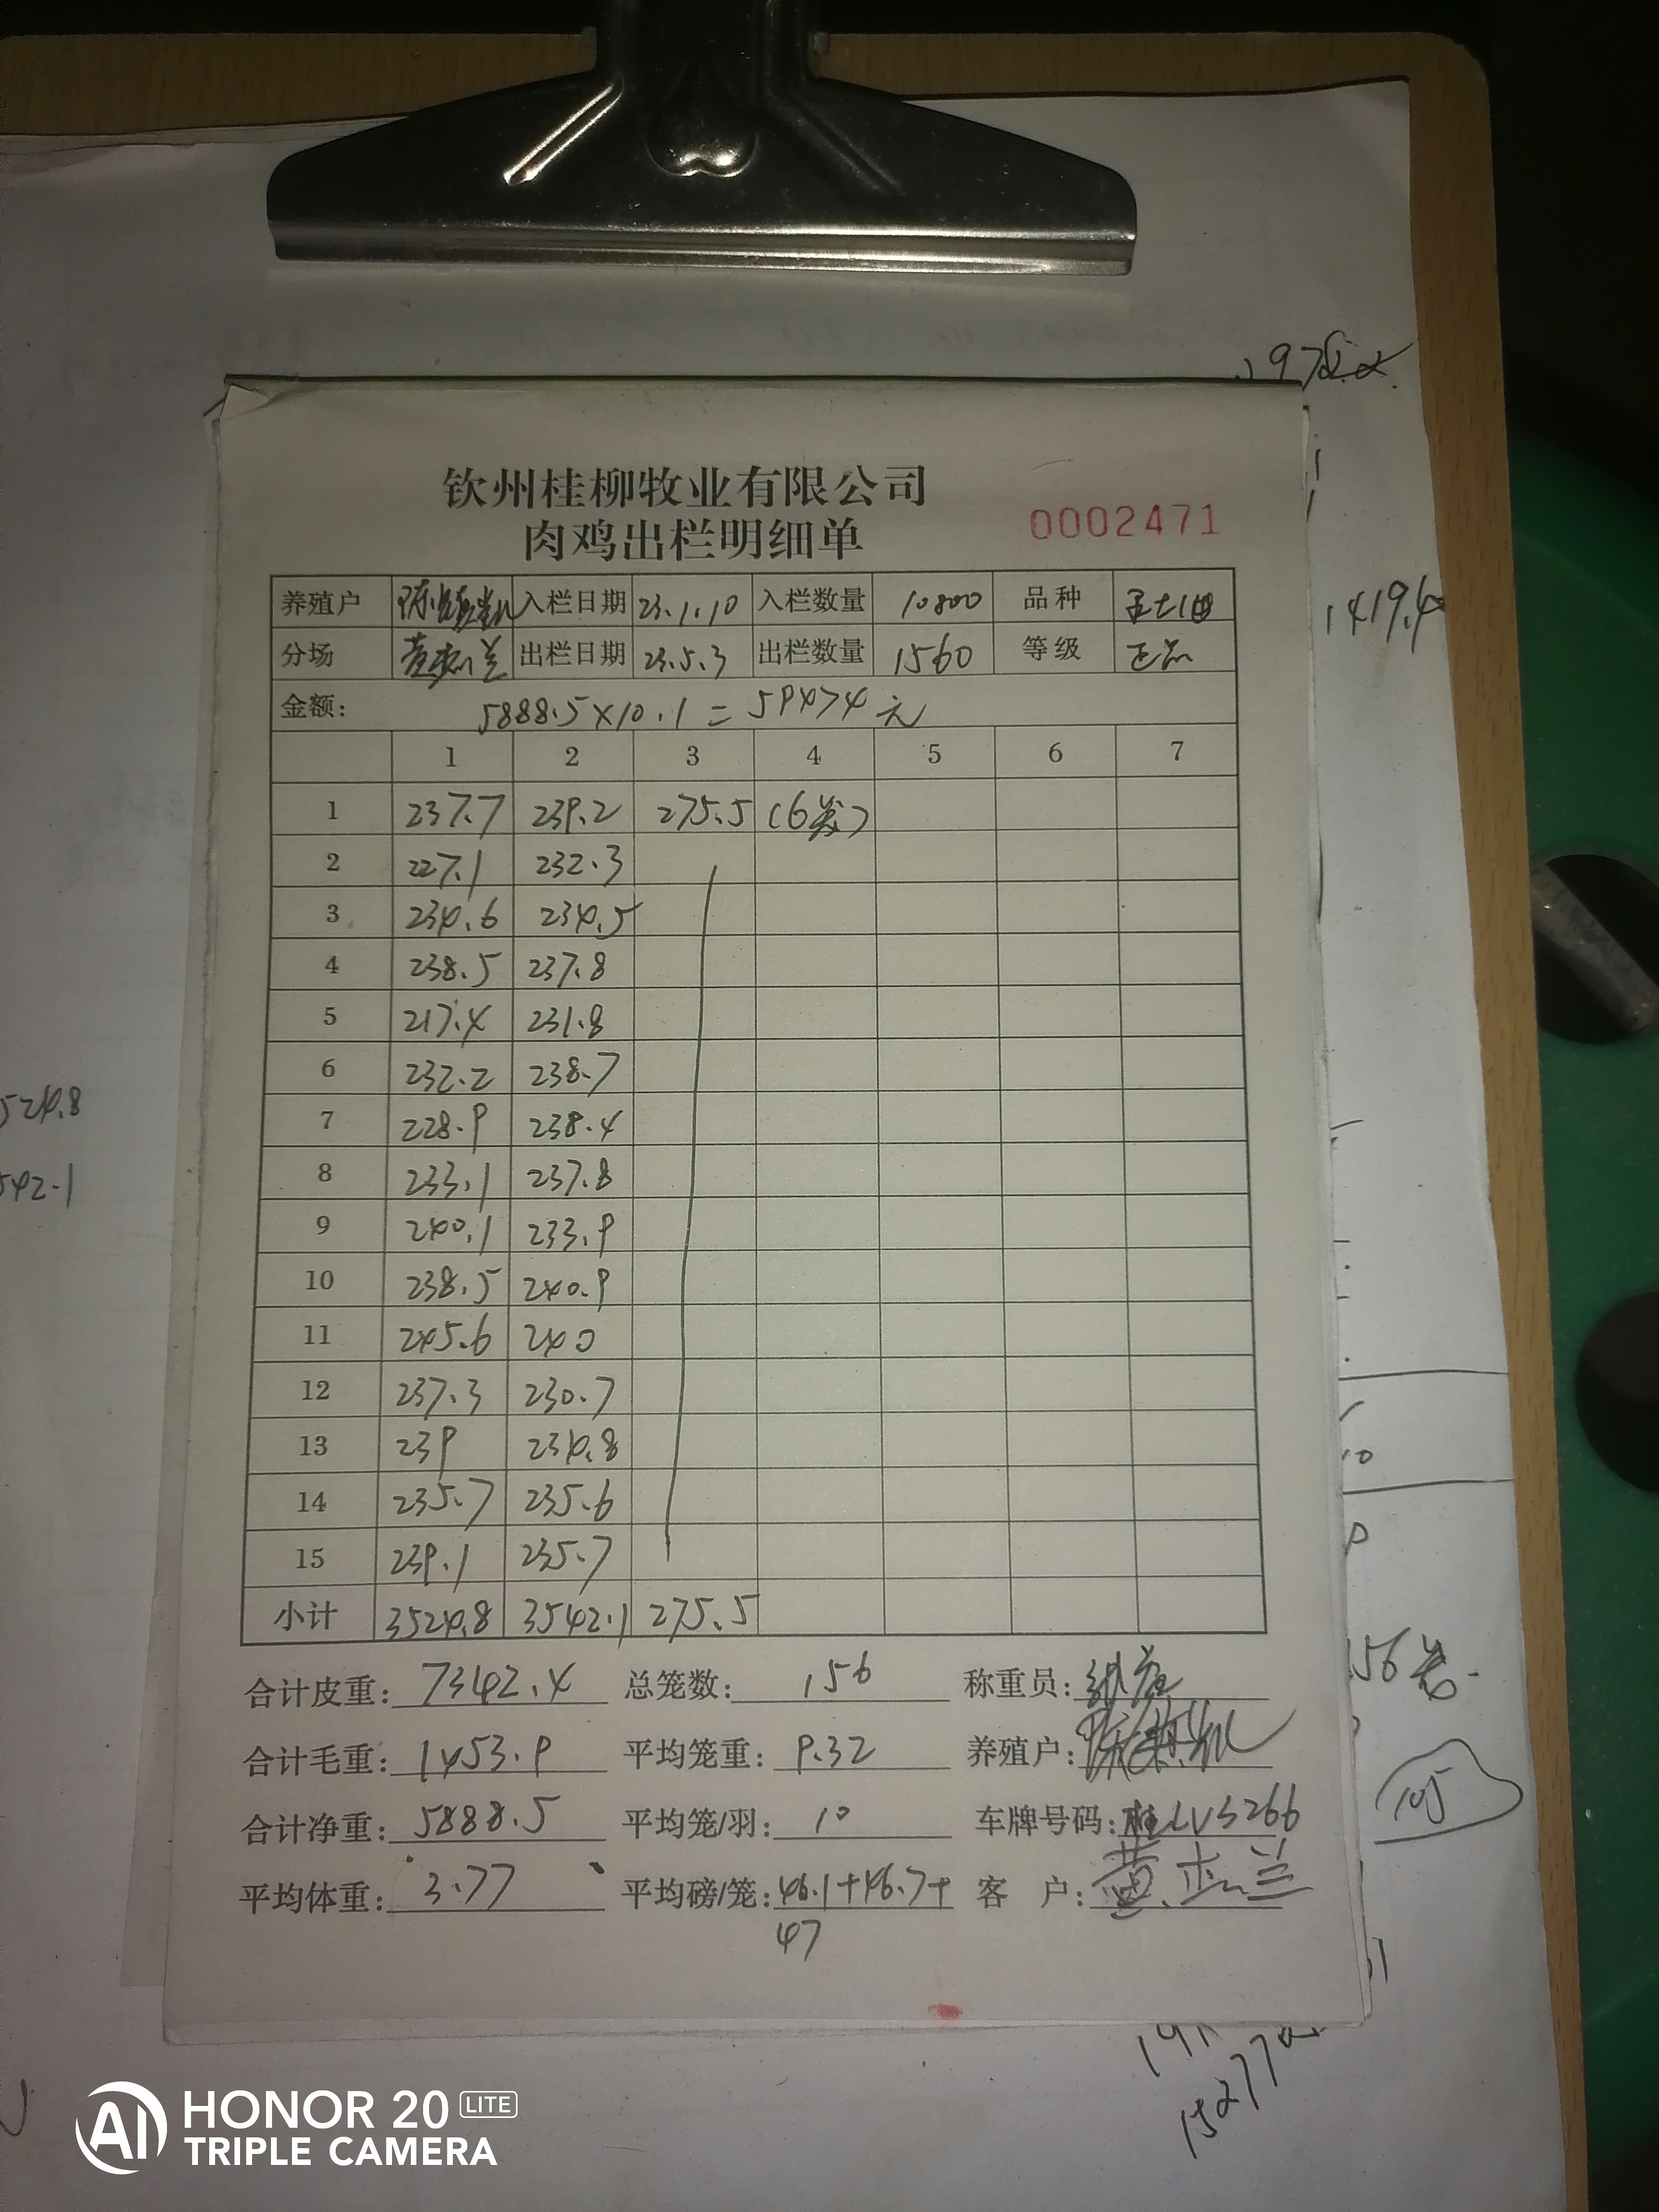 钦州桂柳牧业有限公司
肉鸡出栏明细单 0002471
养殖户 入栏日期 23.1.10 入栏数量 10800 品种
分场 出栏日期 23.5.3 出栏数量 1560 等级 正品
金额: 5888.5×10.1=59474元
1 2 3 4 5 6 7
1 237.7 239.2 275.5 (6笼)
2 227.1 232.3
3 234.6 234.5
4 238.5 237.8
5 217.4 231.8
6 232.2 238.7
7 228.9 238.4
8 233.1 237.8
9 240.1 233.9
10 238.5 240.9
11 245.6 240
12 237.3 230.7
13 239 234.8
14 235.7 235.6
15 239.1 235.7
小计 3524.8 3542.1 275.5
合计皮重: 7342.4 总笼数: 156 称重员:
合计毛重: 1453.9 平均笼重: 9.32 养殖户:
合计净重: 5888.5 平均笼/羽: 10 车牌号码: 桂LV3266
平均体重: 3.77 平均磅/笼: 46.1+46.7+ 客 户:
47
1419.4
524.8
542.1
105
AI HONOR 20 LITE
TRIPLE CAMERA